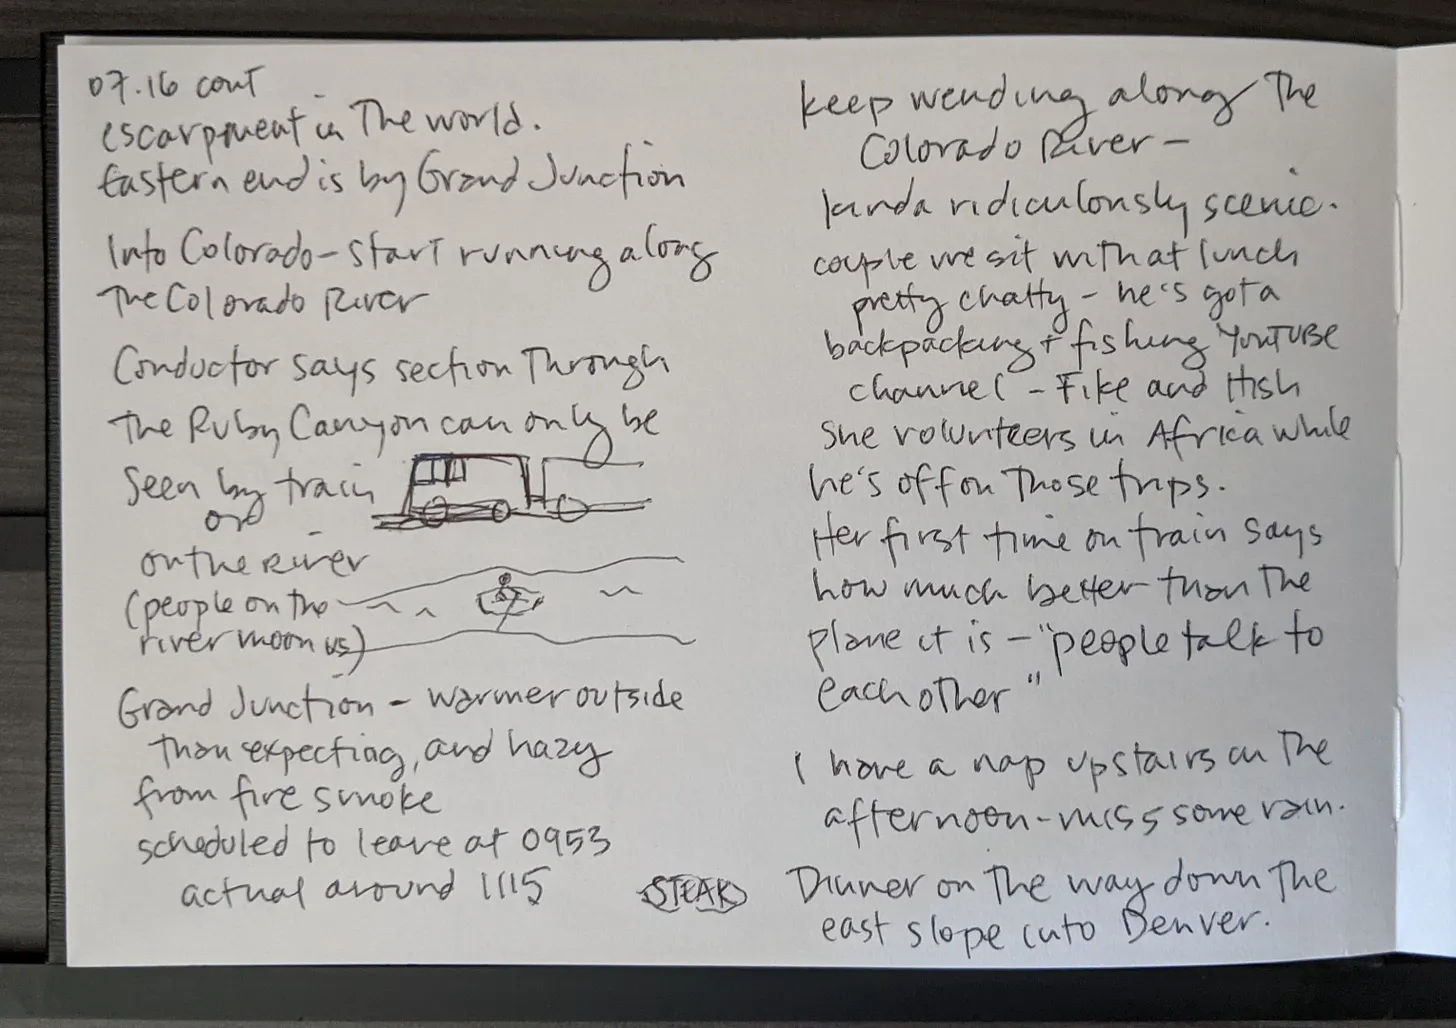 07.16 cont
escarpment in The world.
Eastern end is by Grand Junction
Into Colorado - start running along
The Colorado River
Conductor says section Through
the Ruby Canyon can only be
seen by train
or
on the river
(people on the
river moon us)
Grand Junction - warmer outside
than expecting, and hazy
from fire smoke
scheduled to leave at 0953
actual around 1115
keep wending along The
Colorado River -
kinda ridiculously scenic.
couple we sit with at lunch
pretty chatty - he's got a
backpacking + fishing YouTUBE
channel - Fike and Hish
She volunteers in Africa while
he's off on Those trips.
Her first time on train says
how much better than The
plane it is - "people talk to
each other"
I have a nap upstairs in The
afternoon - miss some rain.
STEAK
Dinner on The way down The
east slope into Denver.